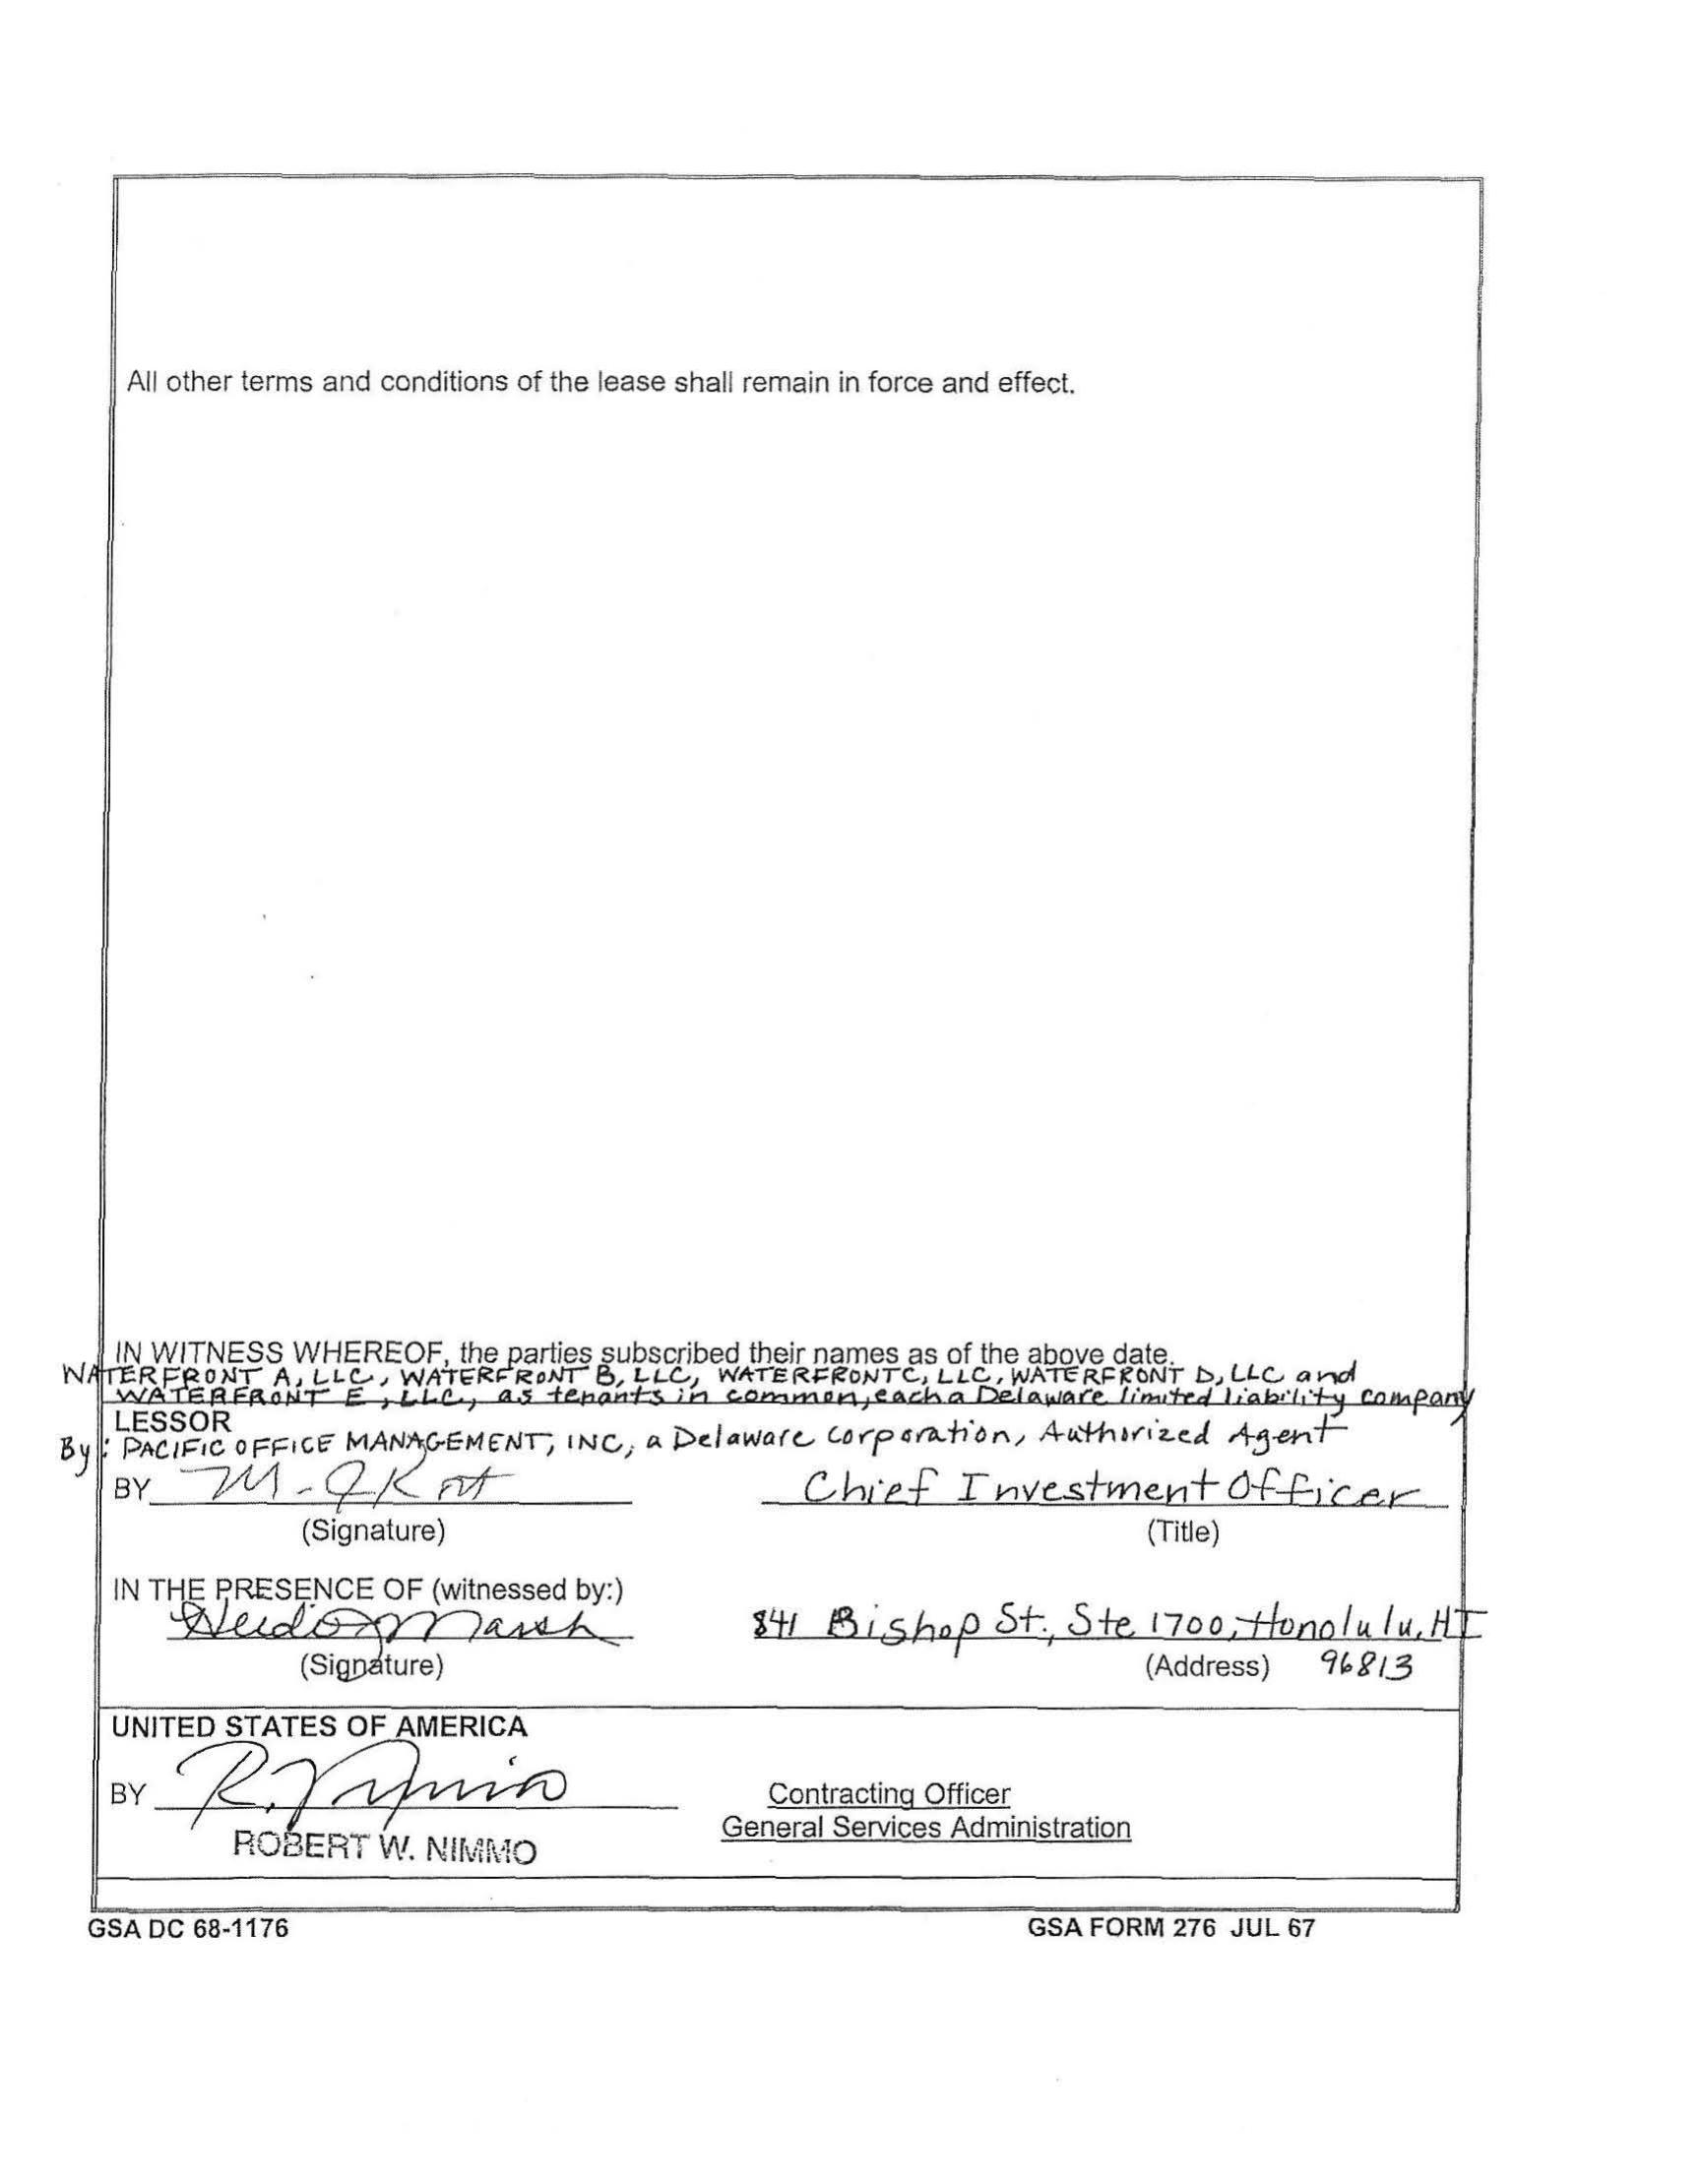 All other terms and conditions of the lease shall remain in force and effect.
IN WITNESS WHEREOF, the parties subscribed their names as of the above date.
WATERFRONT A, LLC, WATERFRONT B, LLC, WATERFRONT C, LLC, WATERFRONT D, LLC and
WATERFRONT E, LLC, as tenants in common, each a Delaware limited liability company
LESSOR
By: PACIFIC OFFICE MANAGEMENT, INC, a Delaware corporation, Authorized Agent
BY Chief Investment Officer
(Signature) (Title)
IN THE PRESENCE OF (witnessed by:)
Marsh 841 Bishop St., Ste 1700, Honolulu, HI
(Signature) (Address) 96813
UNITED STATES OF AMERICA
BY R. Nimmo Contracting Officer
General Services Administration
ROBERT W. NIMMO
GSA DC 68-1176 GSA FORM 276 JUL 67